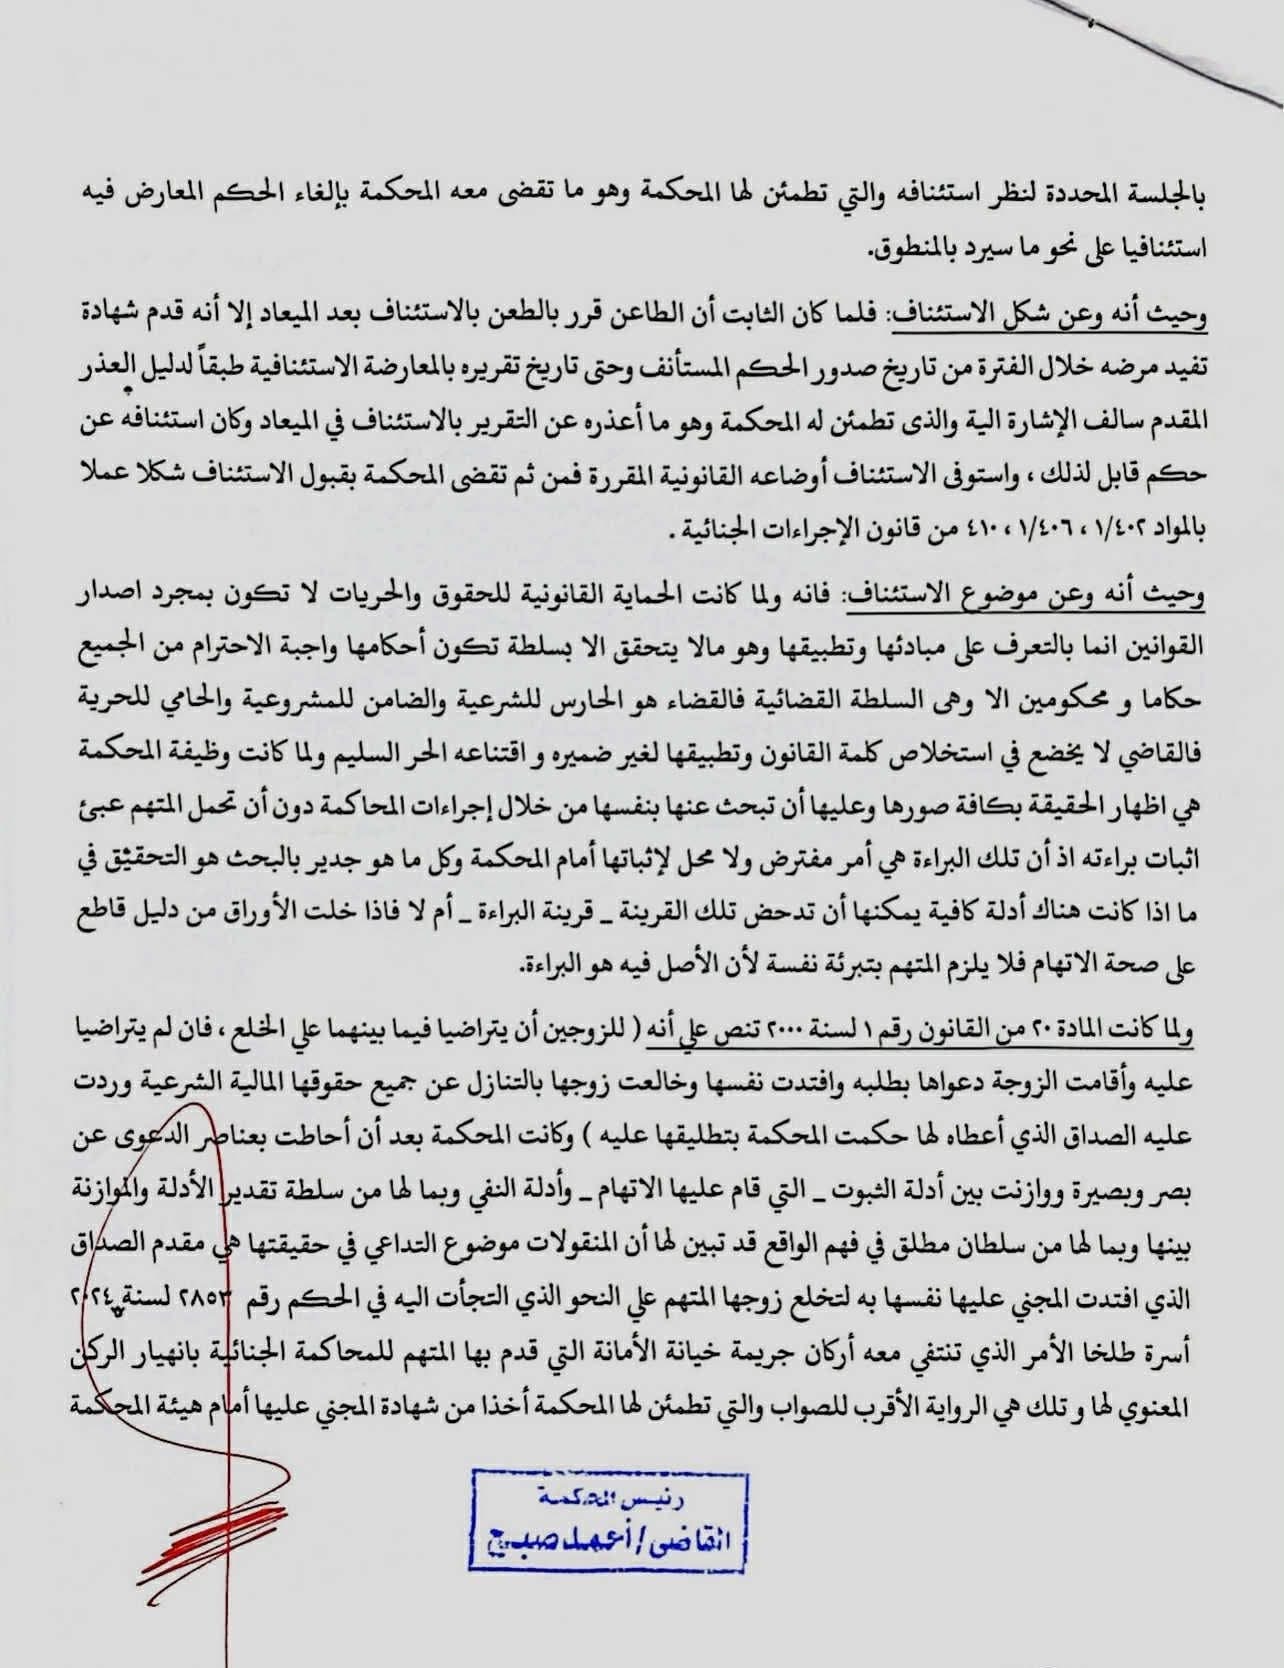 بالجلسة المحددة لنظر استئنافه والتي تطمئن لها المحكمة وهو ما تقضى معه المحكمة بإلغاء الحكم المعارض فيه
استئنافيا على نحو ما سيرد بالمنطوق.
وحيث أنه وعن شكل الاستئناف: فلما كان الثابت أن الطاعن قرر بالطعن بالاستئناف بعد الميعاد إلا أنه قدم شهادة
تفيد مرضه خلال الفترة من تاريخ صدور الحكم المستأنف وحتى تاريخ تقريره بالمعارضة الاستئنافية طبقاً لدليل العذر
المقدم سالف الإشارة الية والذى تطمئن له المحكمة وهو ما أعذره عن التقرير بالاستئناف في الميعاد وكان استئنافه عن
حكم قابل لذلك ، واستوفى الاستئناف أوضاعه القانونية المقررة فمن ثم تقضى المحكمة بقبول الاستئناف شكلا عملا
بالمواد ١/٤٠٢ ، ١/٤٠٦ ، ٤١٠ من قانون الإجراءات الجنائية .
وحيث أنه وعن موضوع الاستئناف: فانه ولما كانت الحماية القانونية للحقوق والحريات لا تكون بمجرد اصدار
القوانين انما بالتعرف على مبادئها وتطبيقها وهو مالا يتحقق الا بسلطة تكون أحكامها واجبة الاحترام من الجميع
حكاما و محكومين الا وهى السلطة القضائية فالقضاء هو الحارس للشرعية والضامن للمشروعية والحامي للحرية
فالقاضي لا يخضع في استخلاص كلمة القانون وتطبيقها لغير ضميره و اقتناعه الحر السليم ولما كانت وظيفة المحكمة
هي اظهار الحقيقة بكافة صورها وعليها أن تبحث عنها بنفسها من خلال إجراءات المحاكمة دون أن تحمل المتهم عبئ
اثبات براءته اذ أن تلك البراءة هي أمر مفترض ولا محل لإثباتها أمام المحكمة وكل ما هو جدير بالبحث هو التحقيق في
ما اذا كانت هناك أدلة كافية يمكنها أن تدحض تلك القرينة _ قرينة البراءة _ أم لا فاذا خلت الأوراق من دليل قاطع
على صحة الاتهام فلا يلزم المتهم بتبرئة نفسة لأن الأصل فيه هو البراءة.
ولما كانت المادة ٢٠ من القانون رقم ١ لسنة ٢٠٠٠ تنص علي أنه ( للزوجين أن يتراضيا فيما بينهما علي الخلع ، فان لم يتراضيا
عليه وأقامت الزوجة دعواها بطلبه وافتدت نفسها وخالعت زوجها بالتنازل عن جميع حقوقها المالية الشرعية وردت
عليه الصداق الذي أعطاه لها حكمت المحكمة بتطليقها عليه ) وكانت المحكمة بعد أن أحاطت بعناصر الدعوى عن
بصر وبصيرة ووازنت بين أدلة الثبوت _ التي قام عليها الاتهام _ وأدلة النفي وبما لها من سلطة تقدير الأدلة والموازنة
بينها وبما لها من سلطان مطلق في فهم الواقع قد تبين لها أن المنقولات موضوع التداعي في حقيقتها هي مقدم الصداق
الذي افتدت المجني عليها نفسها به لتخلع زوجها المتهم علي النحو الذي التجأت اليه في الحكم رقم ٢٨٥٣ لسنة ٢٠٢٤
أسرة طلخا الأمر الذي تنتفي معه أركان جريمة خيانة الأمانة التي قدم بها المتهم للمحاكمة الجنائية بانهيار الركن
المعنوي لها و تلك هي الرواية الأقرب للصواب والتي تطمئن لها المحكمة أخذا من شهادة المجني عليها أمام هيئة المحكمة
رئيس المحكمة
القاضى/